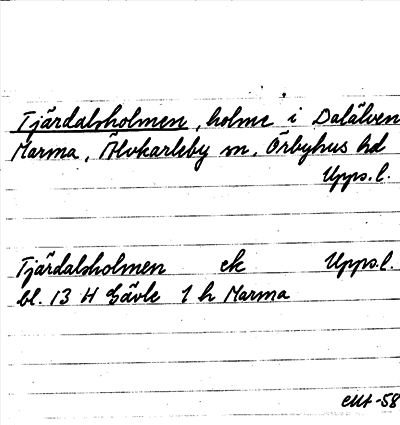 Tjärdalsholmen, holme i Dalälven
Marma, Älvkarleby sn, Örbyhus hd
Upps.l.
Tjärdalsholmen ek Upps.l.
bl. 13 H Gävle 1 h Marma
-58